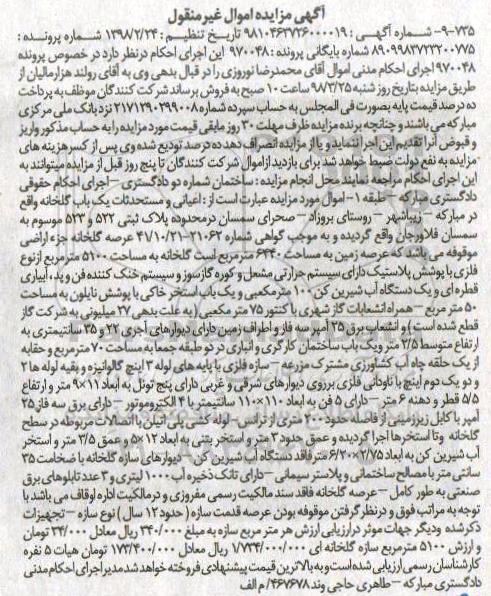 آگهی مزایده اموال غیر منقول
۹-۷۳۵- شماره آگهی : ۹۸۱۰۴۶۳۷۳۶۰۰۰۰۱۹ تاریخ تنظیم : ۱۳۹۸/۲/۲۴ شماره پرونده :
۸۹۰۹۹۸۳۷۲۳۲۰۰۷۷۵ شماره بایگانی پرونده : ۹۷۰۰۴۸ این اجرای احکام درنظر دارد در خصوص پرونده
۹۷۰۰۴۸ اجرای احکام مدنی اموال آقای محمدرضا نوروزی را در قبال بدهی وی به آقای رولند هزارمالیان از
طریق مزایده بتاریخ روز شنبه ۹۸/۳/۲۵ ساعت ۱۰ صبح به فروش برساند شرکت کنندگان موظف به پرداخت
ده درصد قیمت پایه بصورت فی المجلس به حساب سپرده شماره ۲۱۷۱۲۹۰۲۹۹۰۰۸ نزد بانک ملی مرکزی
مبارکه می باشند و چنانچه برنده مزایده ظرف مهلت ۳۰ روز مابقی قیمت مورد مزایده را به حساب مذکور واریز
و قبوض آنرا تقدیم این اجرا ننماید و یا از مزایده انصراف دهد ده درصد تودیع شده وی پس از کسر هزینه های
مزایده به نفع دولت ضبط خواهد شد برای بازدید از اموال شرکت کنندگان تا پنج روز قبل از مزایده میتوانند به
این اجرای احکام مراجعه نمایند محل انجام مزایده : ساختمان شماره دو دادگستری – اجرای احکام حقوقی
دادگستری مبارکه – طبقه ۱- اموال مورد مزایده عبارت است از : اعیانی و مستحدثات یک باب گلخانه واقع
در مبارکه – زیباشهر – روستای بروزاد – صحرای سمسان در محدوده پلاک ثبتی ۵۲۲ و ۵۲۳ موسوم به
سمسان فلاورجان واقع گردیده و به موجب گواهی شماره ۲۱۰۶۲-۴۱/۱۰/۲۱ عرصه گلخانه جزء اراضی
موقوفه می باشد که عرصه زمین به مساحت ۶۴۴۰ مترمربع است گلخانه به مساحت ۵۱۰۰ مترمربع از نوع
فلزی با پوشش پلاستیک دارای سیستم حرارتی مشعل و کوره گازسوز و سیستم خنک کننده فن و پد، آبیاری
قطره ای و یک دستگاه آب شیرین کن ۱۰۰ مترمکعبی و یک باب استخر خاکی با پوشش نایلون به مساحت
۵۰ متر مربع – همراه انشعابات گاز شهری با کنتور ۷۵ متر مکعبی ( به علت بدهی ۲۷ میلیونی به شرکت گاز
قطع شده است ) و انشعاب برق ۲۵ آمپر سه فاز و اطراف زمین دارای دیوارهای آجری ۲۲ و ۳۵ سانتیمتری به
ارتفاع متوسط ۲/۵ متر و یک باب ساختمان کارگری و انباری در دو طبقه جمعا به مساحت ۷۰ مترمربع و حقابه
از یک حلقه چاه آب کشاورزی مشترک مزرعه – سازه فلزی با پایه های لوله ۳ اینچ گالوانیزه و بقیه لوله ها ۲
و دو یک دوم اینچ با ناودانی فلزی برروی دیوارهای شرقی و غربی دارای پنج تونل به ابعاد ۱۱×۹ متر و ارتفاع
۵/۵ قطر و دهنه ۶ متر – دارای ۵ فن به ابعاد ۱۱۰×۱۱۰ سانتیمتر با ۴ الکتروموتور – دارای برق سه فاز ۲۵
آمپر با کابل زیرزمینی از فاصله حدود ۲۰۰ متری از ترانس – لوله کشی پلی اتیلن با اتصالات مربوطه در سطح
گلخانه و تا استخرها اجرا گردیده و عمق حدود ۳ متر و استخر بتنی به ابعاد ۱۲×۵ و عمق ۳/۵ متر و استخر
آب شیرین کن به ابعاد ۲/۷۵×۶/۲۰ متر فاقد دستگاه آب شیرین کن – دیوارهای سازه گلخانه با ضخامت ۳۵
سانتی متر با مصالح ساختمانی و پلاستر سیمانی – دارای تانک ذخیره آب ۱۰۰۰ لیتری و ۳ عدد تابلوهای برق
صنعتی به طور کامل – عرصه گلخانه فاقد سند مالکیت رسمی مفروزی و در مالکیت اداره اوقاف می باشد با
توجه به مراتب فوق و در نظر گرفتن موقوفه بودن عرصه قدمت سازه ( حدود ۱۲ سال ) نوع سازه – تجهیزات
ذکر شده و دیگر جهات موثر در ارزیابی ارزش هر متر مربع سازه به مبلغ ۳۴۰/۰۰۰ ریال معادل ۳۴/۰۰۰ تومان
و ارزش ۵۱۰۰ مترمربع سازه گلخانه ای ۱/۷۳۴/۰۰۰/۰۰۰ ریال معادل ۱۷۳/۴۰۰/۰۰۰ تومان هیات ۵ نفره
کارشناسان رسمی ارزیابی شده است و به بالاترین قیمت پیشنهادی فروخته خواهد شد مدیر اجرای احکام مدنی
دادگستری مبارکه – طاهری حاجی وند ۴۶۷۶۷۸/ م الف